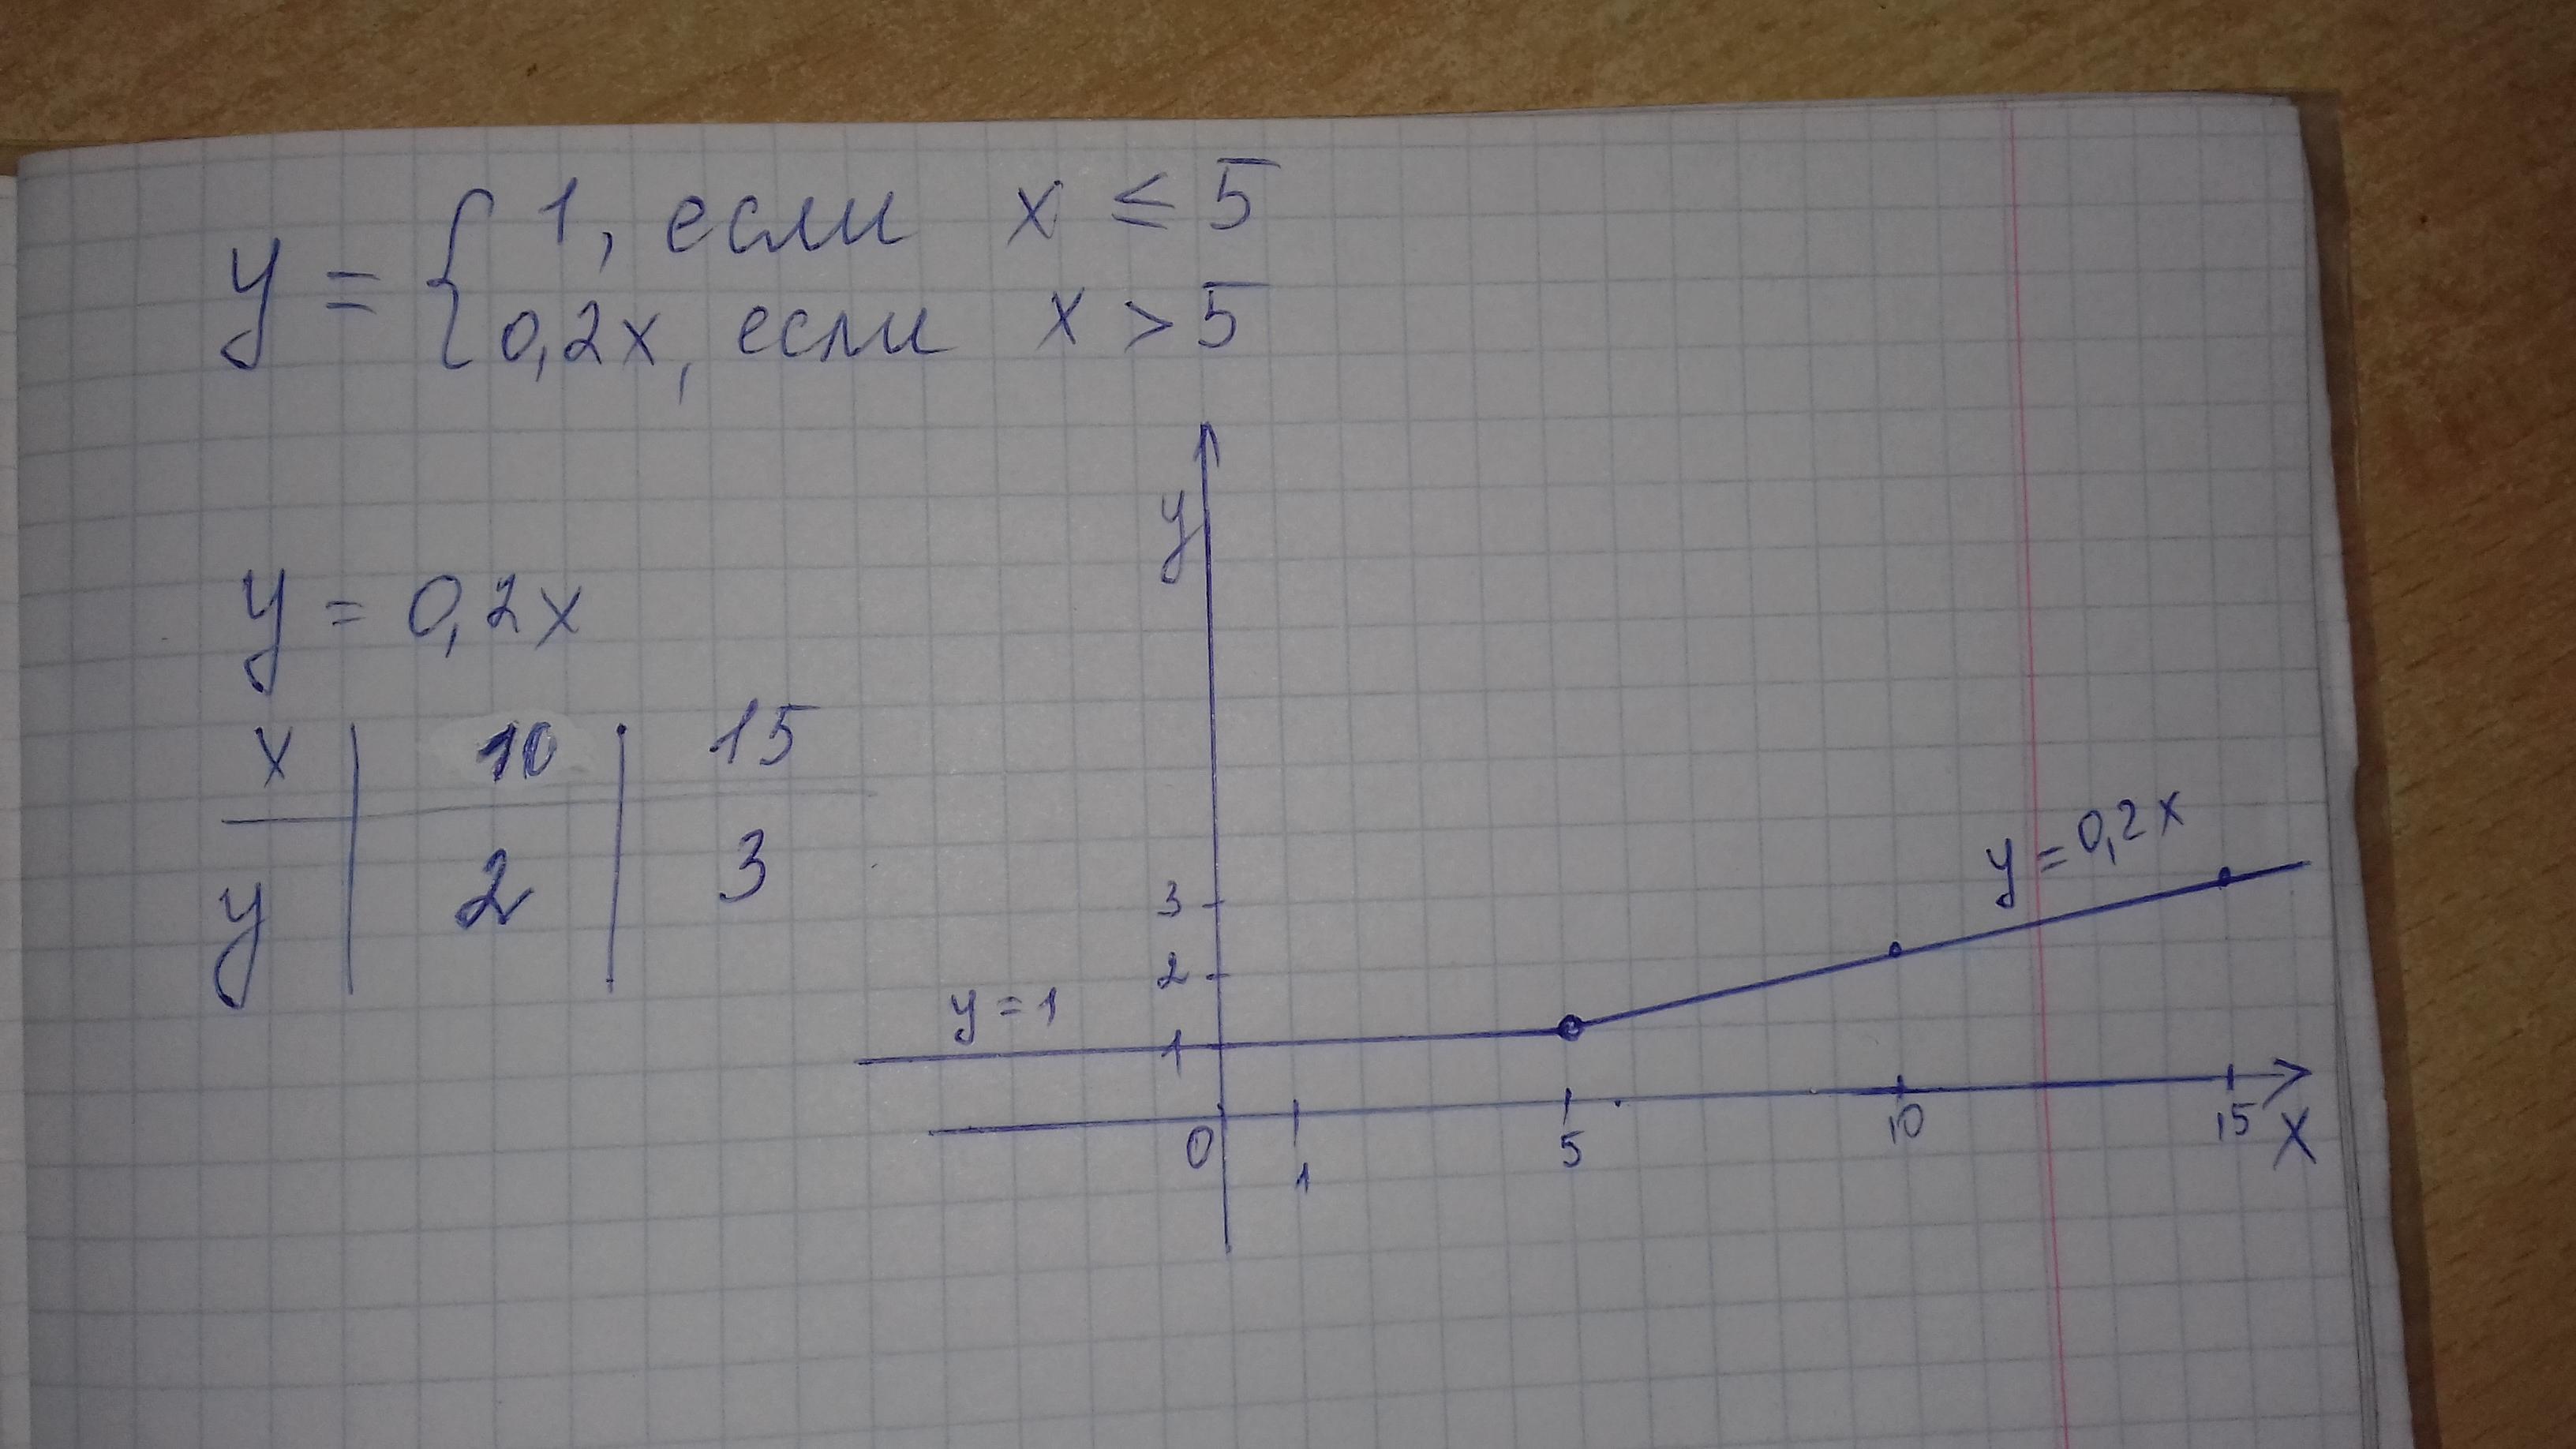 y = { 1, если x ≤ 5
0,2x, если x > 5
y = 0,2x
x | 10 | 15
y | 2 | 3
y
y = 0,2x
3
2
y = 1
1
0 1 5 10 15 x